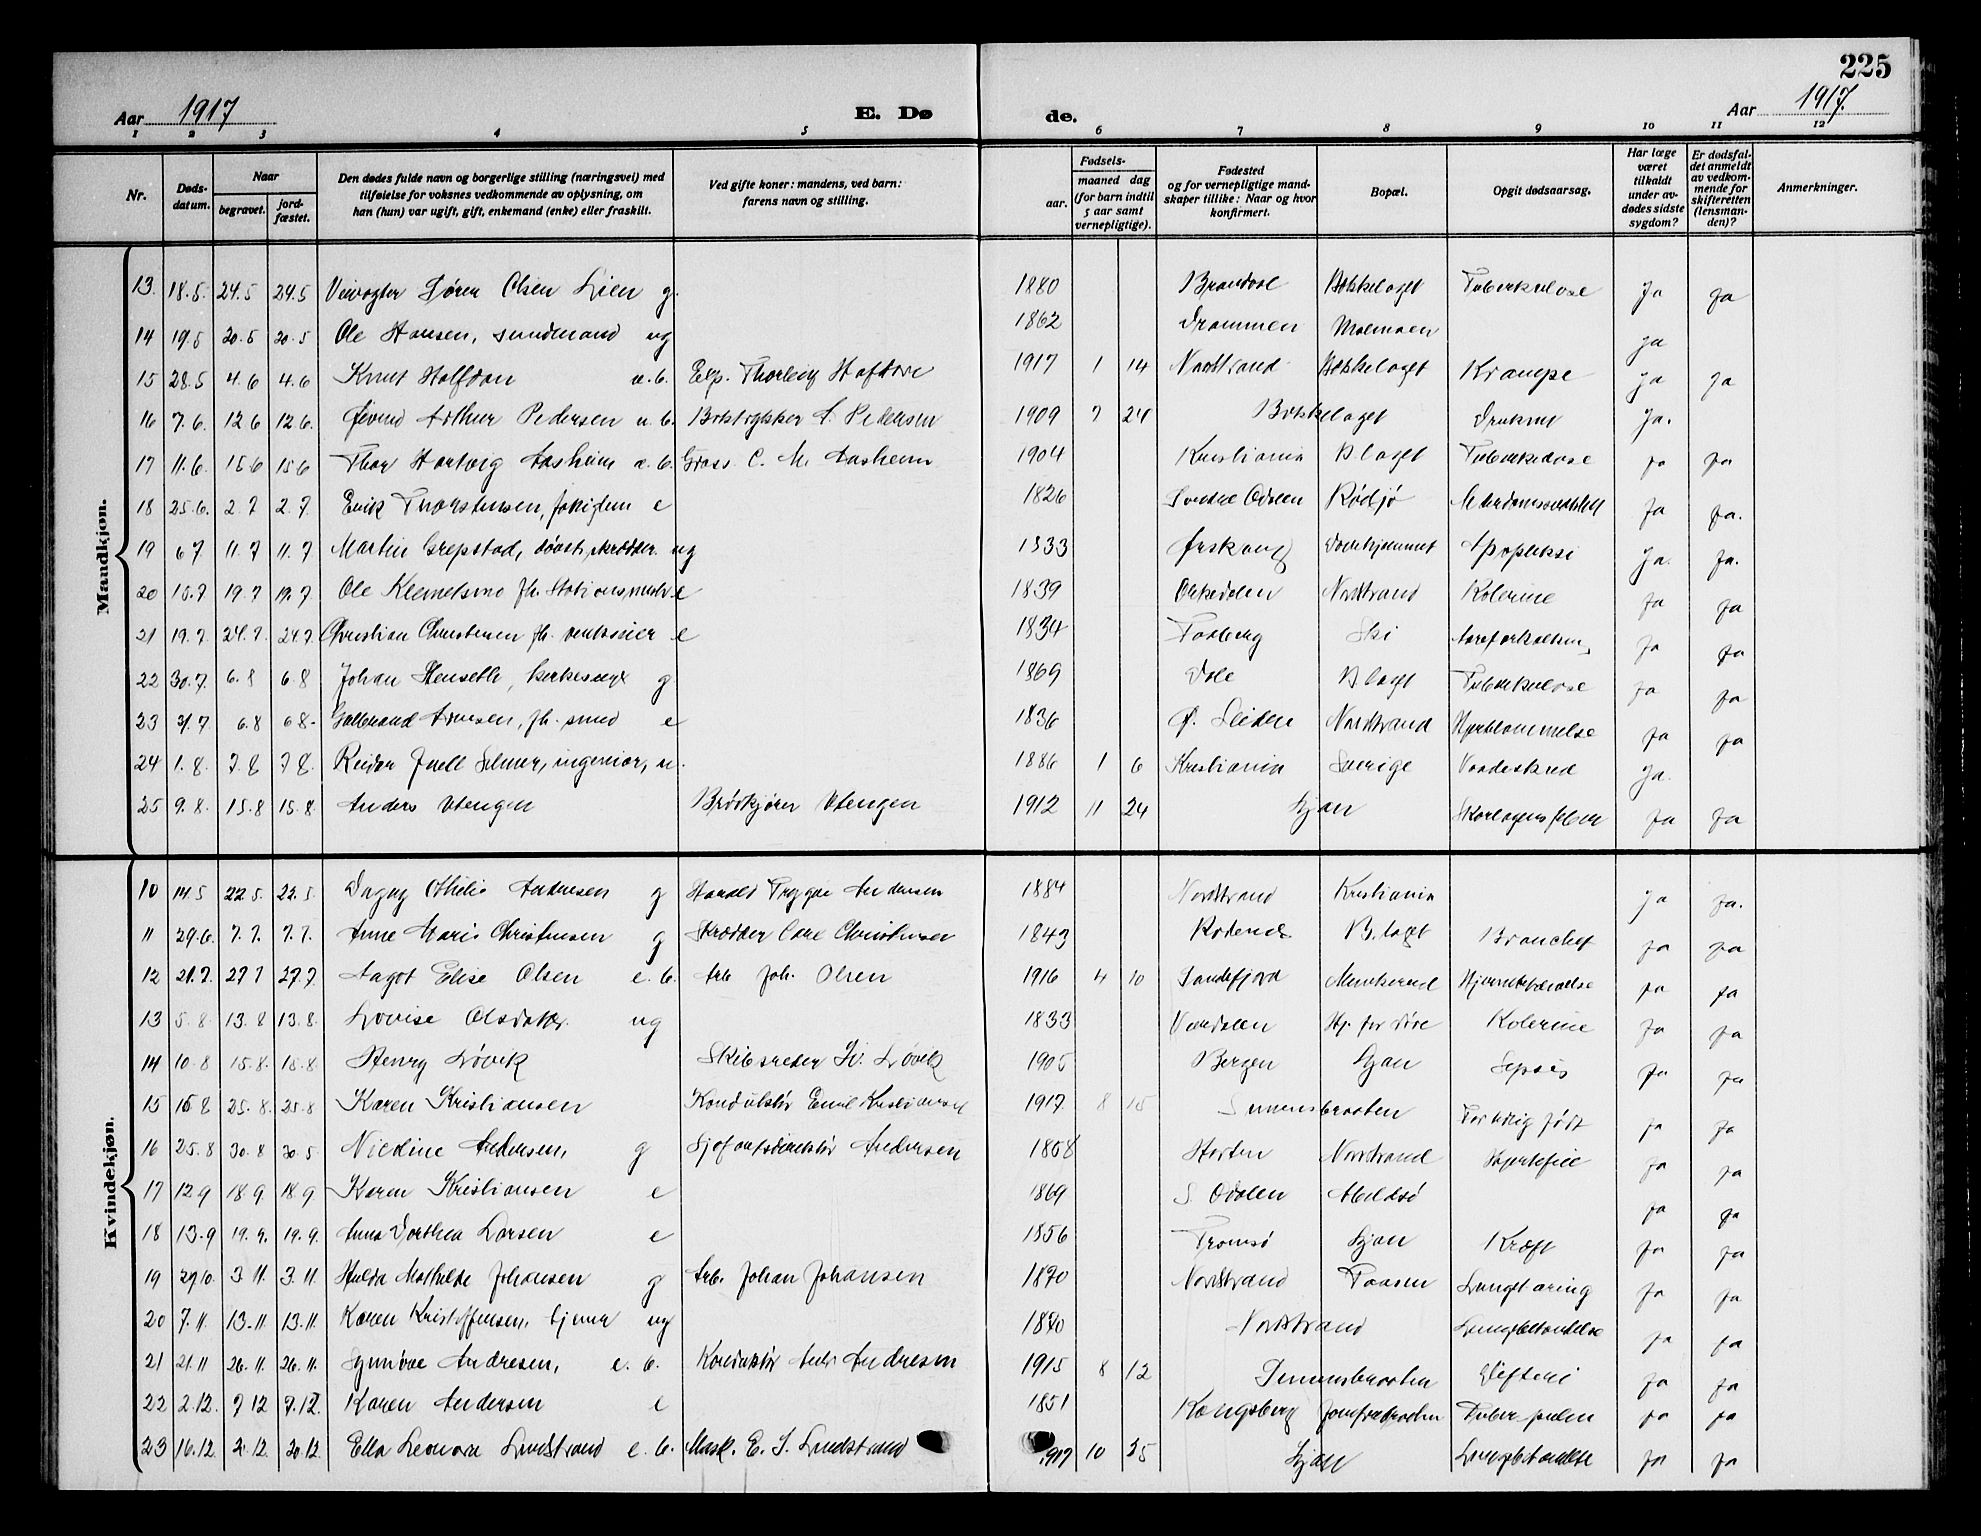 225
Aar 1917 E. Dø de. Aar 1917.
1 2 3 4 5 6 7 8 9 10 11 12
Nr. Døds-datum. Naar begravet. jord-fæstet. Den dødes fulde navn og borgerlige stilling (næringsvei) med tilføielse for voksnes vedkommende av oplysning, om han (hun) var ugift, gift, enkemand (enke) eller fraskilt. Ved gifte koner: mandens, ved barn: farens navn og stilling. Fødsels- aar. maaned dag (for barn indtil 5 aar samt vernepligtige). Fødested og for vernepligtige mand-skaper tillike: Naar og hvor konfirmert. Bopæl. Opgit dødsaarsag. Har læge været tilkaldt under av-dødes sidste sygdom? Er dødsfal-det anmeldt av vedkom-mende for skifteretten (lensman-den)? Anmerkninger.
Mandkjøn.
13. 18.5. 24.5 24.5 Søren Olsen Lien g. 1880 Bækkelaget Tuberkulose Ja Ja
14 19.5 20.5 20.5 Ole Hansen, ug 1862 Drammen Ja
15 28.5 4.6 4.6 Knut Halfdan 1917 1 14 Nordstrand Bækkelaget Krampe Ja Ja
16 7.6. 12 6 12 6. Øivind Arthur Pedersen A. Pedersen 1909 7 24 Bækkelaget Druknet Ja.
17 11.6. 15 6 15 6 Thor Aasheim C. M. Aasheim 1904 Kristiania B.laget Tuberkulose ja ja
18 25.6. 2.7 2.7. Erik Thorstensen, e 1826 Søndre Odalen Ja ja.
19 6 7 11.7 11.7 Martin Grepstad, døvst. skrædder ug 1833 Ørskoug Apopleksi Ja. ja.
20 15.7 19.7 19.7 Ole Klemetsmo fh. Stationsmester e 1839 Orkedalen Nordstrand Kolerine Ja ja
21 19.7. 24.7. 24.7. Christian Christensen fh. e 1834 Faaberg Ski Aareforkalkn. Ja ja
22 30.7. 6.8 6.8 Johan g. 1869 B.laget Tuberkulose ja ja
23 31.7 6.8 6 8 Gulbrand Arnesen, fh. smed e 1836 Ø. Slidre Nordstrand Hjertelammelse ja ja
24 1.8. 7.8 7 8. Reidar Juell Selmer, ingeniør, u. 1886 1 6 Kristiania Sverige Vaadeskud Ja.
25 9.8. 15.8 15.8. Anders Utengen Brødkjører Utengen 1912 11 24 Ljan Skarlagensfeber ja ja
Kvindekjøn.
10 14.5 22.5. 22.5. Dagny Othilie Andresen g Harald Trygve Andersen 1884 Nordstrand Kristiania Ja ja.
11 29.6. 7.7. 7.7. Anne Marie Christensen g Skrædder Carl Christensen 1843 Rødenes B.laget Bronchit ja ja
12 21.7. 27 7 27.7. Aagot Elise Olsen e.b. Arb Joh. Olsen 1916 4 10 Sandefjord Munkerud ja ja
13 5.8. 13.8 13.8. Lovise Olsdatter ug 1833 Hj. for døve Kolerine ja ja
14 10.8 15.8. 15.8. Henry Løvik Skibsreder Løvik 1905 Bergen Ljan Sepsis ja ja
15 15 8 25.8. 25.8 Karen Kristiansen Konduktør Emil Kristiansen 1917 8 15 Simensbraaten For tidlig født ja ja
16 25.8 30.8 30.5 Nicoline Andersen, g Andersen 1858 Horten Nordstrand Hjertefeil ja ja
17 12.9 18 9. 18 9 Karen Kristiansen e 1869 S. Odalen Abildsø ja ja
18 13.9 19.9. 19.9. Anna Dorthea Larsen e 1856 Tromsø Ljan Kræft ja ja
19 3.11. 3.11. Hulda Mathilde Johansen g Arb. Johan Johansen 1870 Nordstrand Lungetæring ja ja
20 7.11. 13.11 13.11. Karen Kristoffersen, ug 1870 Nordstrand Lungebetændelse ja ja
21 21.11 26.11. 26.11. Synnøve Andresen, e.b. Konduktør Andr. Andresen 1915 8 12 Simensbraaten Difteri ja ja
22 2.12. 9 12 9.12. Karen Andersen e 1851 Kongsberg Tuber. pulm ja ja
23 16.12. 20.12. 20.12. Ella Leonora Lundstrand e.b. Mask. E. J. Lundstrand 1917 10 25 Ljan Lungebetændelse ja ja